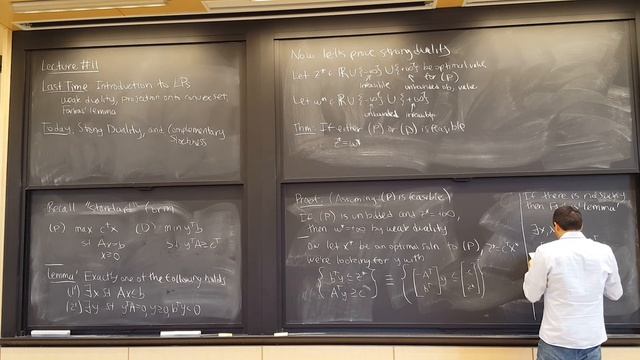 Lecture #11
Last Time Introduction to LPs
weak duality, projection onto convex set,
Farkas' lemma
Today, Strong Duality, and Complementary
Slackness
Recall "standard" form
(P) max cᵀx (D) min yᵀb
st Ax=b st yᵀA≥cᵀ
x≥0
Lemma' Exactly one of the following holds
(1') ∃x st Ax≤b
(2') ∃y st yᵀA=0, y≥0, bᵀy<0
Now let's prove strong duality
Let z* ∈ ℝ ∪ {-∞} ∪ {+∞} be optimal value
infeasible unbounded obj. value for (P)
Let w* ∈ ℝ ∪ {-∞} ∪ {+∞}
unbounded infeasible
Thm: If either (P) or (D) is feasible
z*=w*
Proof: (Assuming (P) is feasible)
If (P) is unbdded and z*=+∞,
then w*=+∞ by weak duality
Now let x* be an optimal soln to (P)
z*=cᵀx*
we're looking for y with
{bᵀy≤z* Aᵀy≥c} ≡ {[-Aᵀ bᵀ] y ≤ [-c z*]}
If there is no such y
then Farkas' lemma'
∃x,